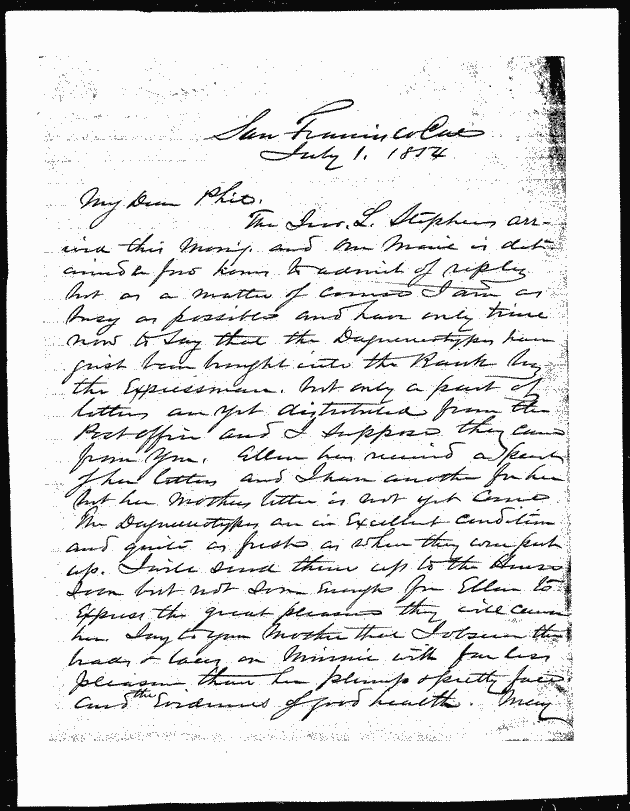 San Francisco Cal
July 1. 1854
My Dear Phil.
The Jno. L. Stephens arr-
ived this Morng. and our Mail is det-
ained a few hours to admit of reply
but as a matter of course I am as
busy as possible and have only time
now to say that the Daguereotypes have
just been brought into the Bank by
the Expressman. but only a part of
letters are yet distributed from the
Post office and I suppose they came
from You. Ellen has received a part
of her letters and I have another for her
but her Mothers letter is not yet come
The Daguereotypes are in Excellent condition
and quite as fresh as when they were put
up. I will send them up to the House
soon but not soon Enough for Ellen to
Express the great pleasure they will cause
her. Say to your Mother that I observe the
beads & lacey on Minnie with far less
pleasure than her plump & pretty face
and the Evidences of good health. Many